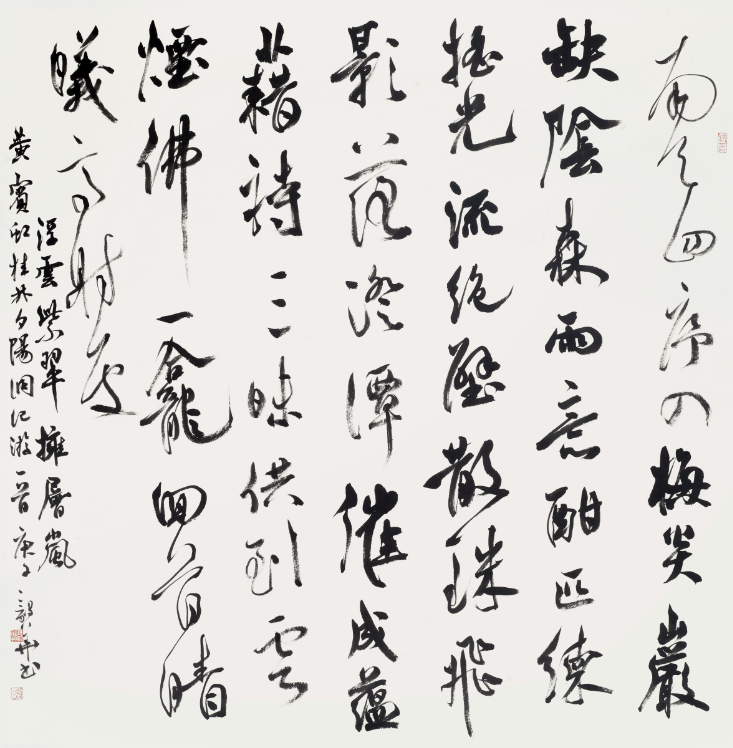 南天四序如梅炎巖
缺陰森雨意酣匹練
搖光流絕壁散珠飛
影落澄潭催成蘊
藉詩三昧供到雲
煙佛一龕回首晴
曦高射處
浮雲紫翠擁層嵐
黃賓虹桂林夕陽洞記游一首庚子